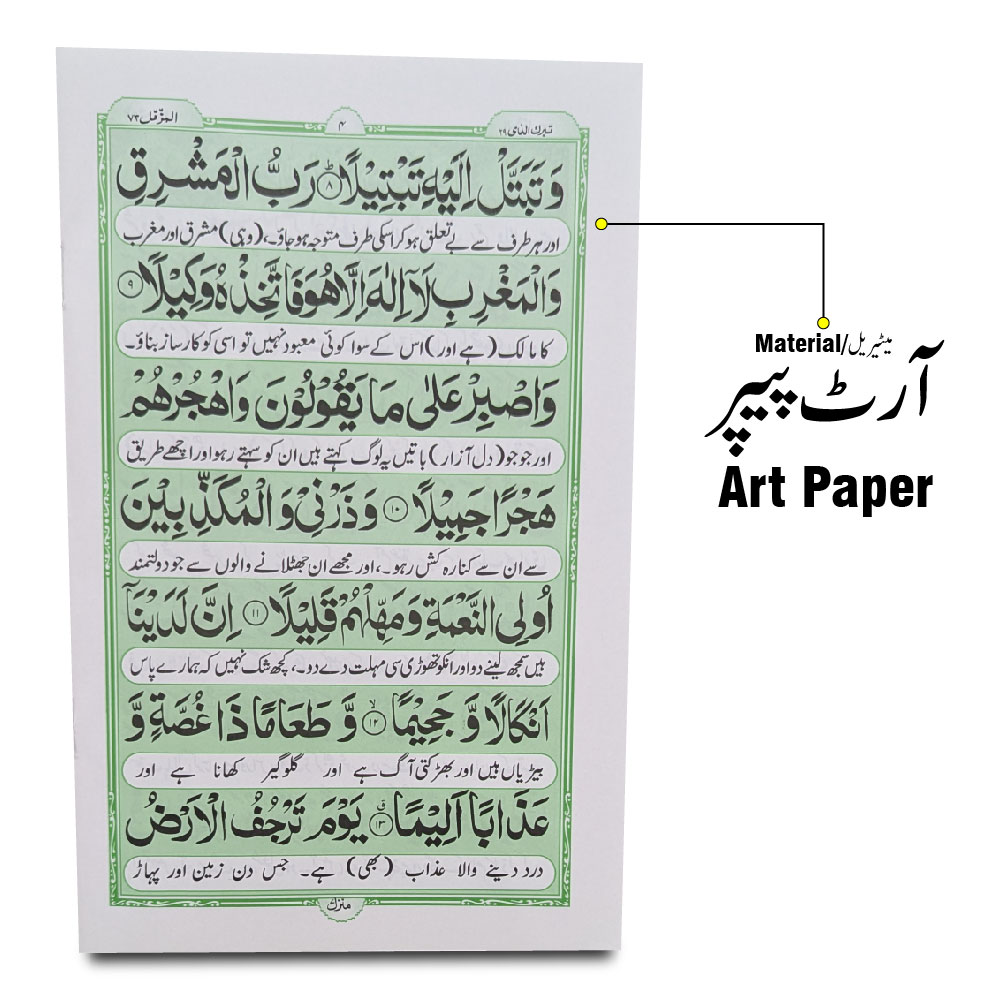 تبرك الذى ٢٩
۴
المزّمّل ٧٣
وَ تَبَتَّلْ اِلَيْهِ تَبْتِيْلًا ؕ۝۸ رَبُّ الْمَشْرِقِ
اور ہر طرف سے بے تعلق ہو کر اسکی طرف متوجہ ہو جاؤ۔، (وہی) مشرق اور مغرب
وَالْمَغْرِبِ لَآ اِلٰهَ اِلَّا هُوَ فَاتَّخِذْهُ وَكِيْلًا ۝۹
کا مالک (ہے اور) اس کے سوا کوئی معبود نہیں تو اسی کو کارساز بناؤ۔
وَاصْبِرْ عَلٰى مَا يَقُوْلُوْنَ وَاهْجُرْهُمْ
اور جو جو (دل آزار) باتیں یہ لوگ کہتے ہیں ان کو سہتے رہو اور اچھے طریق
هَجْرًا جَمِيْلًا ۝۱۰ وَ ذَرْنِيْ وَ الْمُكَذِّبِيْنَ
سے ان سے کنارہ کش رہو۔، اور مجھے ان جھٹلانے والوں سے جو دولتمند
اُولِي النَّعْمَةِ وَ مَهِّلْهُمْ قَلِيْلًا ۝۱۱ اِنَّ لَدَيْنَاۤ
ہیں سمجھ لینے دو اور انکو تھوڑی سی مہلت دے دو۔، کچھ شک نہیں کہ ہمارے پاس
اَنْكَالًا وَّ جَحِيْمًا ۙ۝۱۲ وَّ طَعَامًا ذَا غُصَّةٍ وَّ
بیڑیاں ہیں اور بھڑکتی آگ ہے اور گلوگیر کھانا ہے اور
عَذَابًا اَلِيْمًا ۗ۝۱۳ يَوْمَ تَرْجُفُ الْاَرْضُ
درد دینے والا عذاب (بھی) ہے۔ جس دن زمین اور پہاڑ
منزل
Material/میٹیریل
آرٹ پیپر
Art Paper